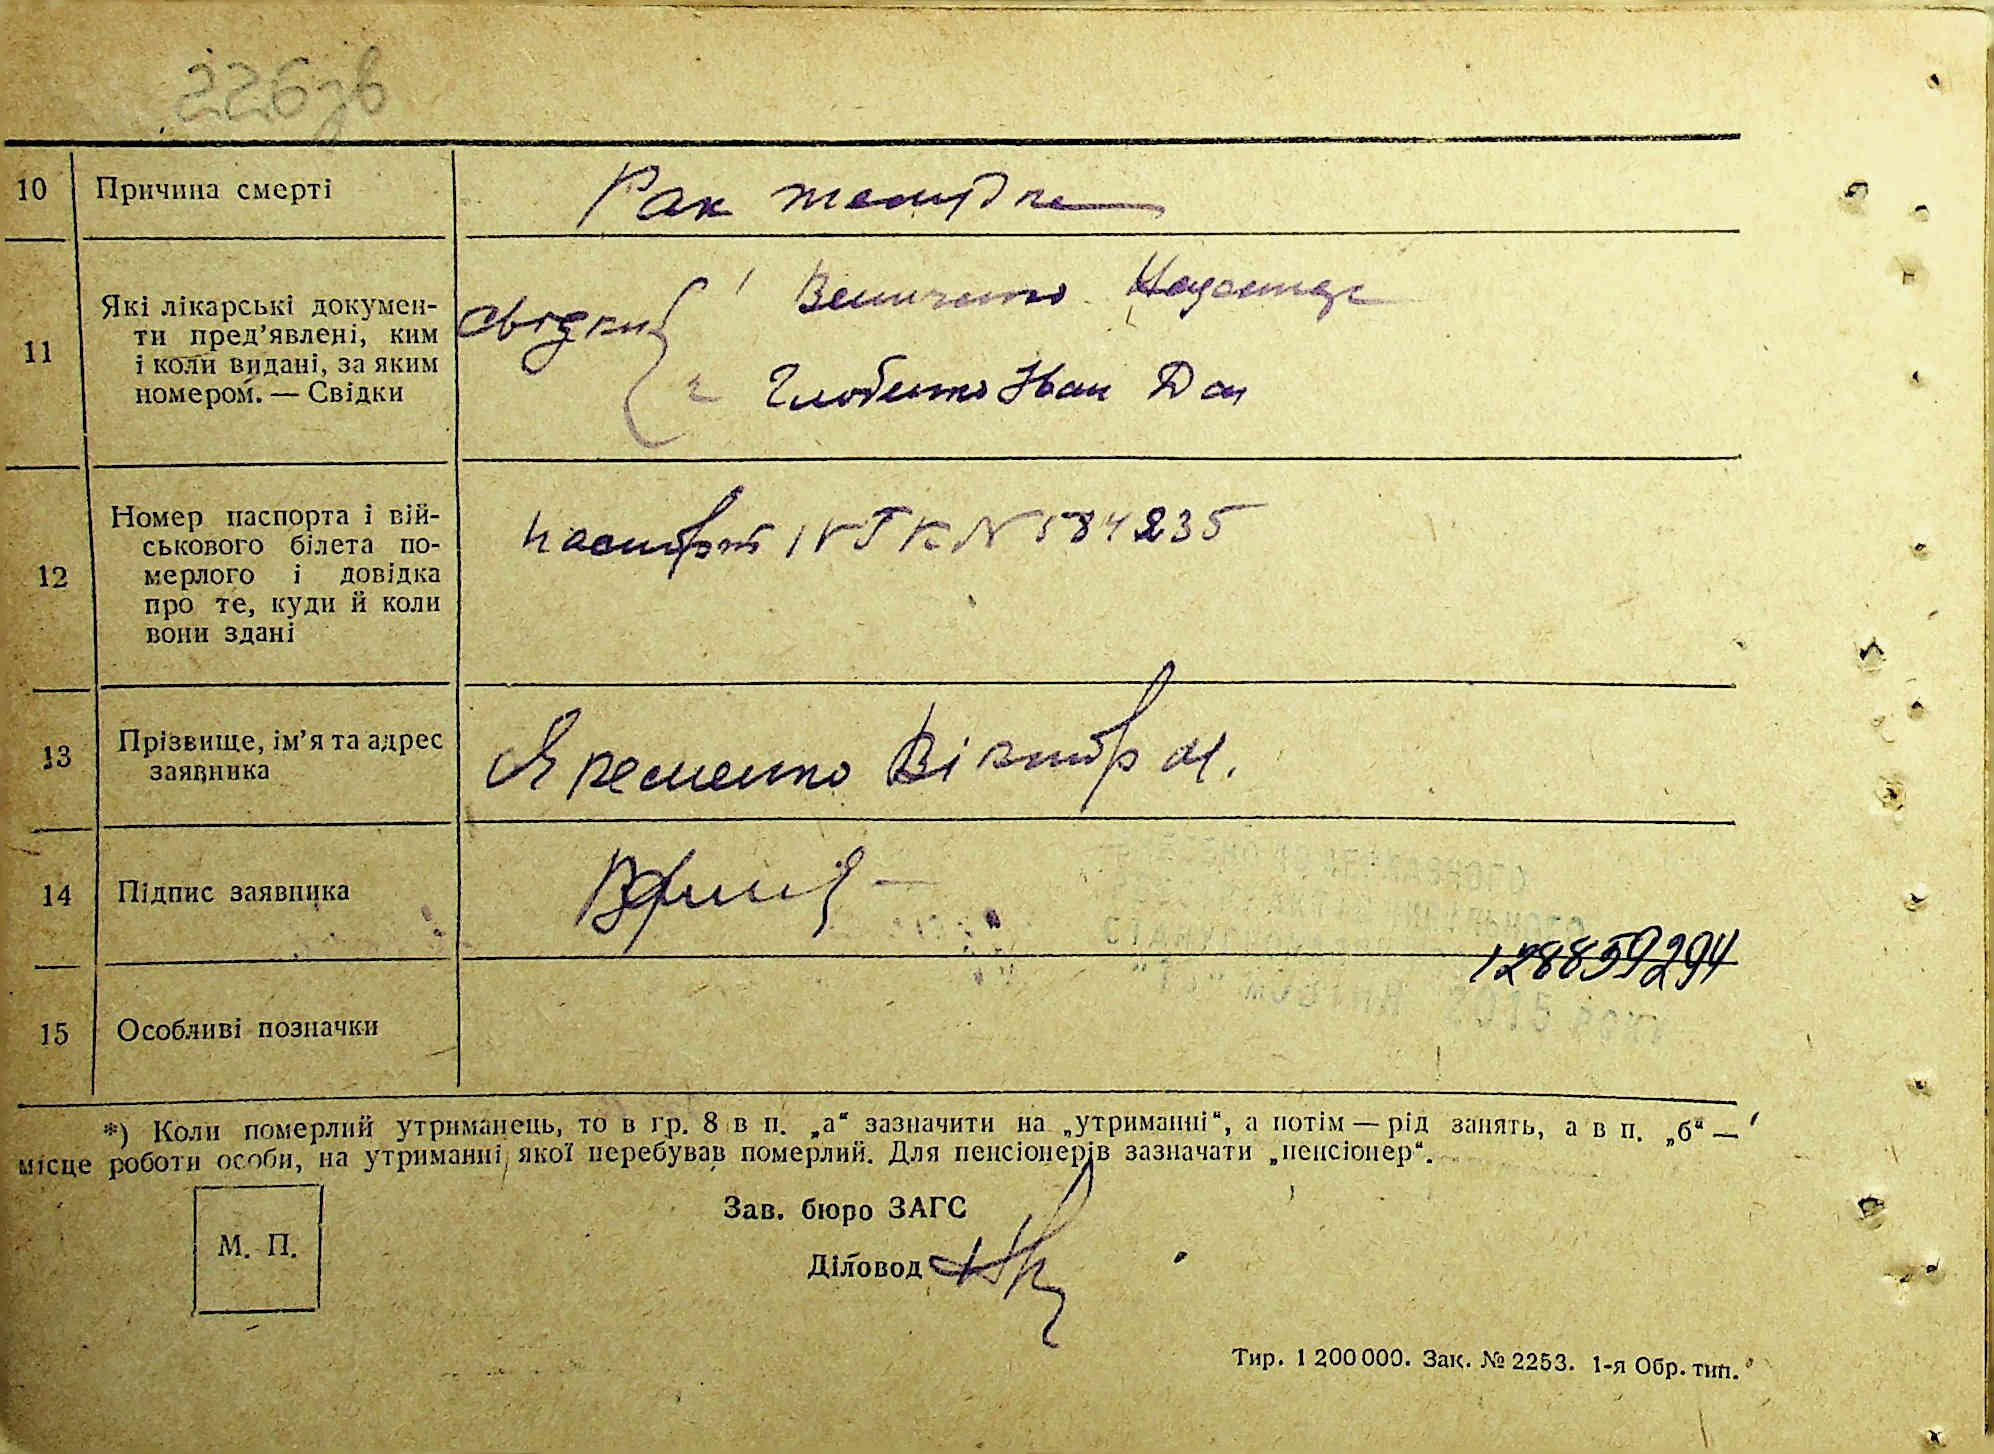 226зв
10 Причина смерті Рак
11 Які лікарські докумен-
ти пред'явлені, ким
і коли видані, за яким
номером. — Свідки
Свідки
1 Величенко
2 Глобенко Іван Дан
12 Номер паспорта і вій-
ськового білета по-
мерлого і довідка
про те, куди й коли
вони здані
паспорт IV ТК № 584235
13 Прізвище, ім'я та адрес
заявника
Яременко Віктор М.
14 Підпис заявника
128859294
15 Особливі позначки
*) Коли померлий утриманець, то в гр. 8 в п. „а“ зазначити на „утриманні“, а потім — рід занять, а в п. „б“ —
місце роботи особи, на утриманні якої перебував померлий. Для пенсіонерів зазначати „пенсіонер“.
М. П.
Зав. бюро ЗАГС
Діловод
Тир. 1 200 000. Зак. № 2253. 1-я Обр. тип.